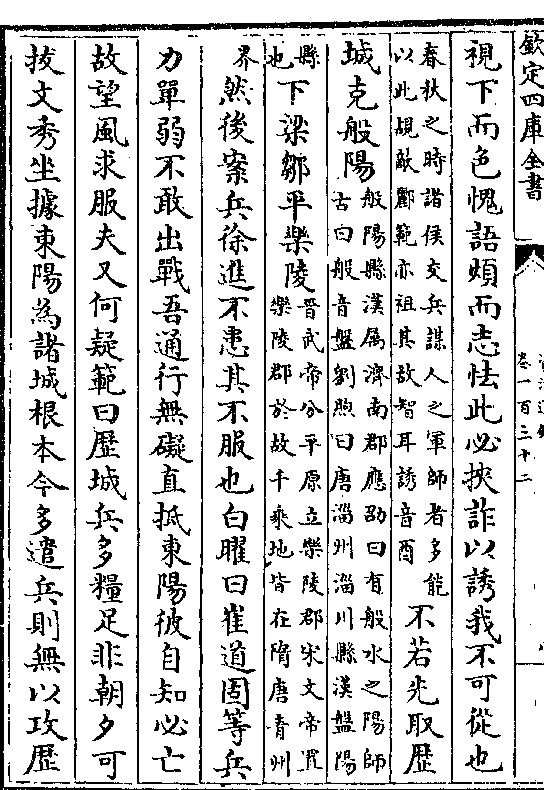 欽定四庫全書
卷一百三十二
視下而色愧語煩而志怯此必挾詐以誘我不可從也
春秋之時諸侯交兵謀人之軍師者多能
以此覘敵酈範亦祖其故智耳誘音酉
不若先取歷
城克般陽
般陽縣漢屬濟南郡應劭曰有般水之陽師
古曰般音盤劉煦曰唐淄州淄川縣漢盤陽
縣
也
下梁鄒平樂陵
晉武帝分平原立樂陵郡宋文帝置
樂陵郡於故千乘地皆在隋唐青州
界
然後案兵徐進不患其不服也白曜曰崔道固等兵
力單弱不敢出戰吾通行無礙直抵東陽彼自知必亡
故望風求服夫又何疑範曰歷城兵多糧足非朝夕可
拔文秀坐據東陽為諸城根本今多遣兵則無以攻歷